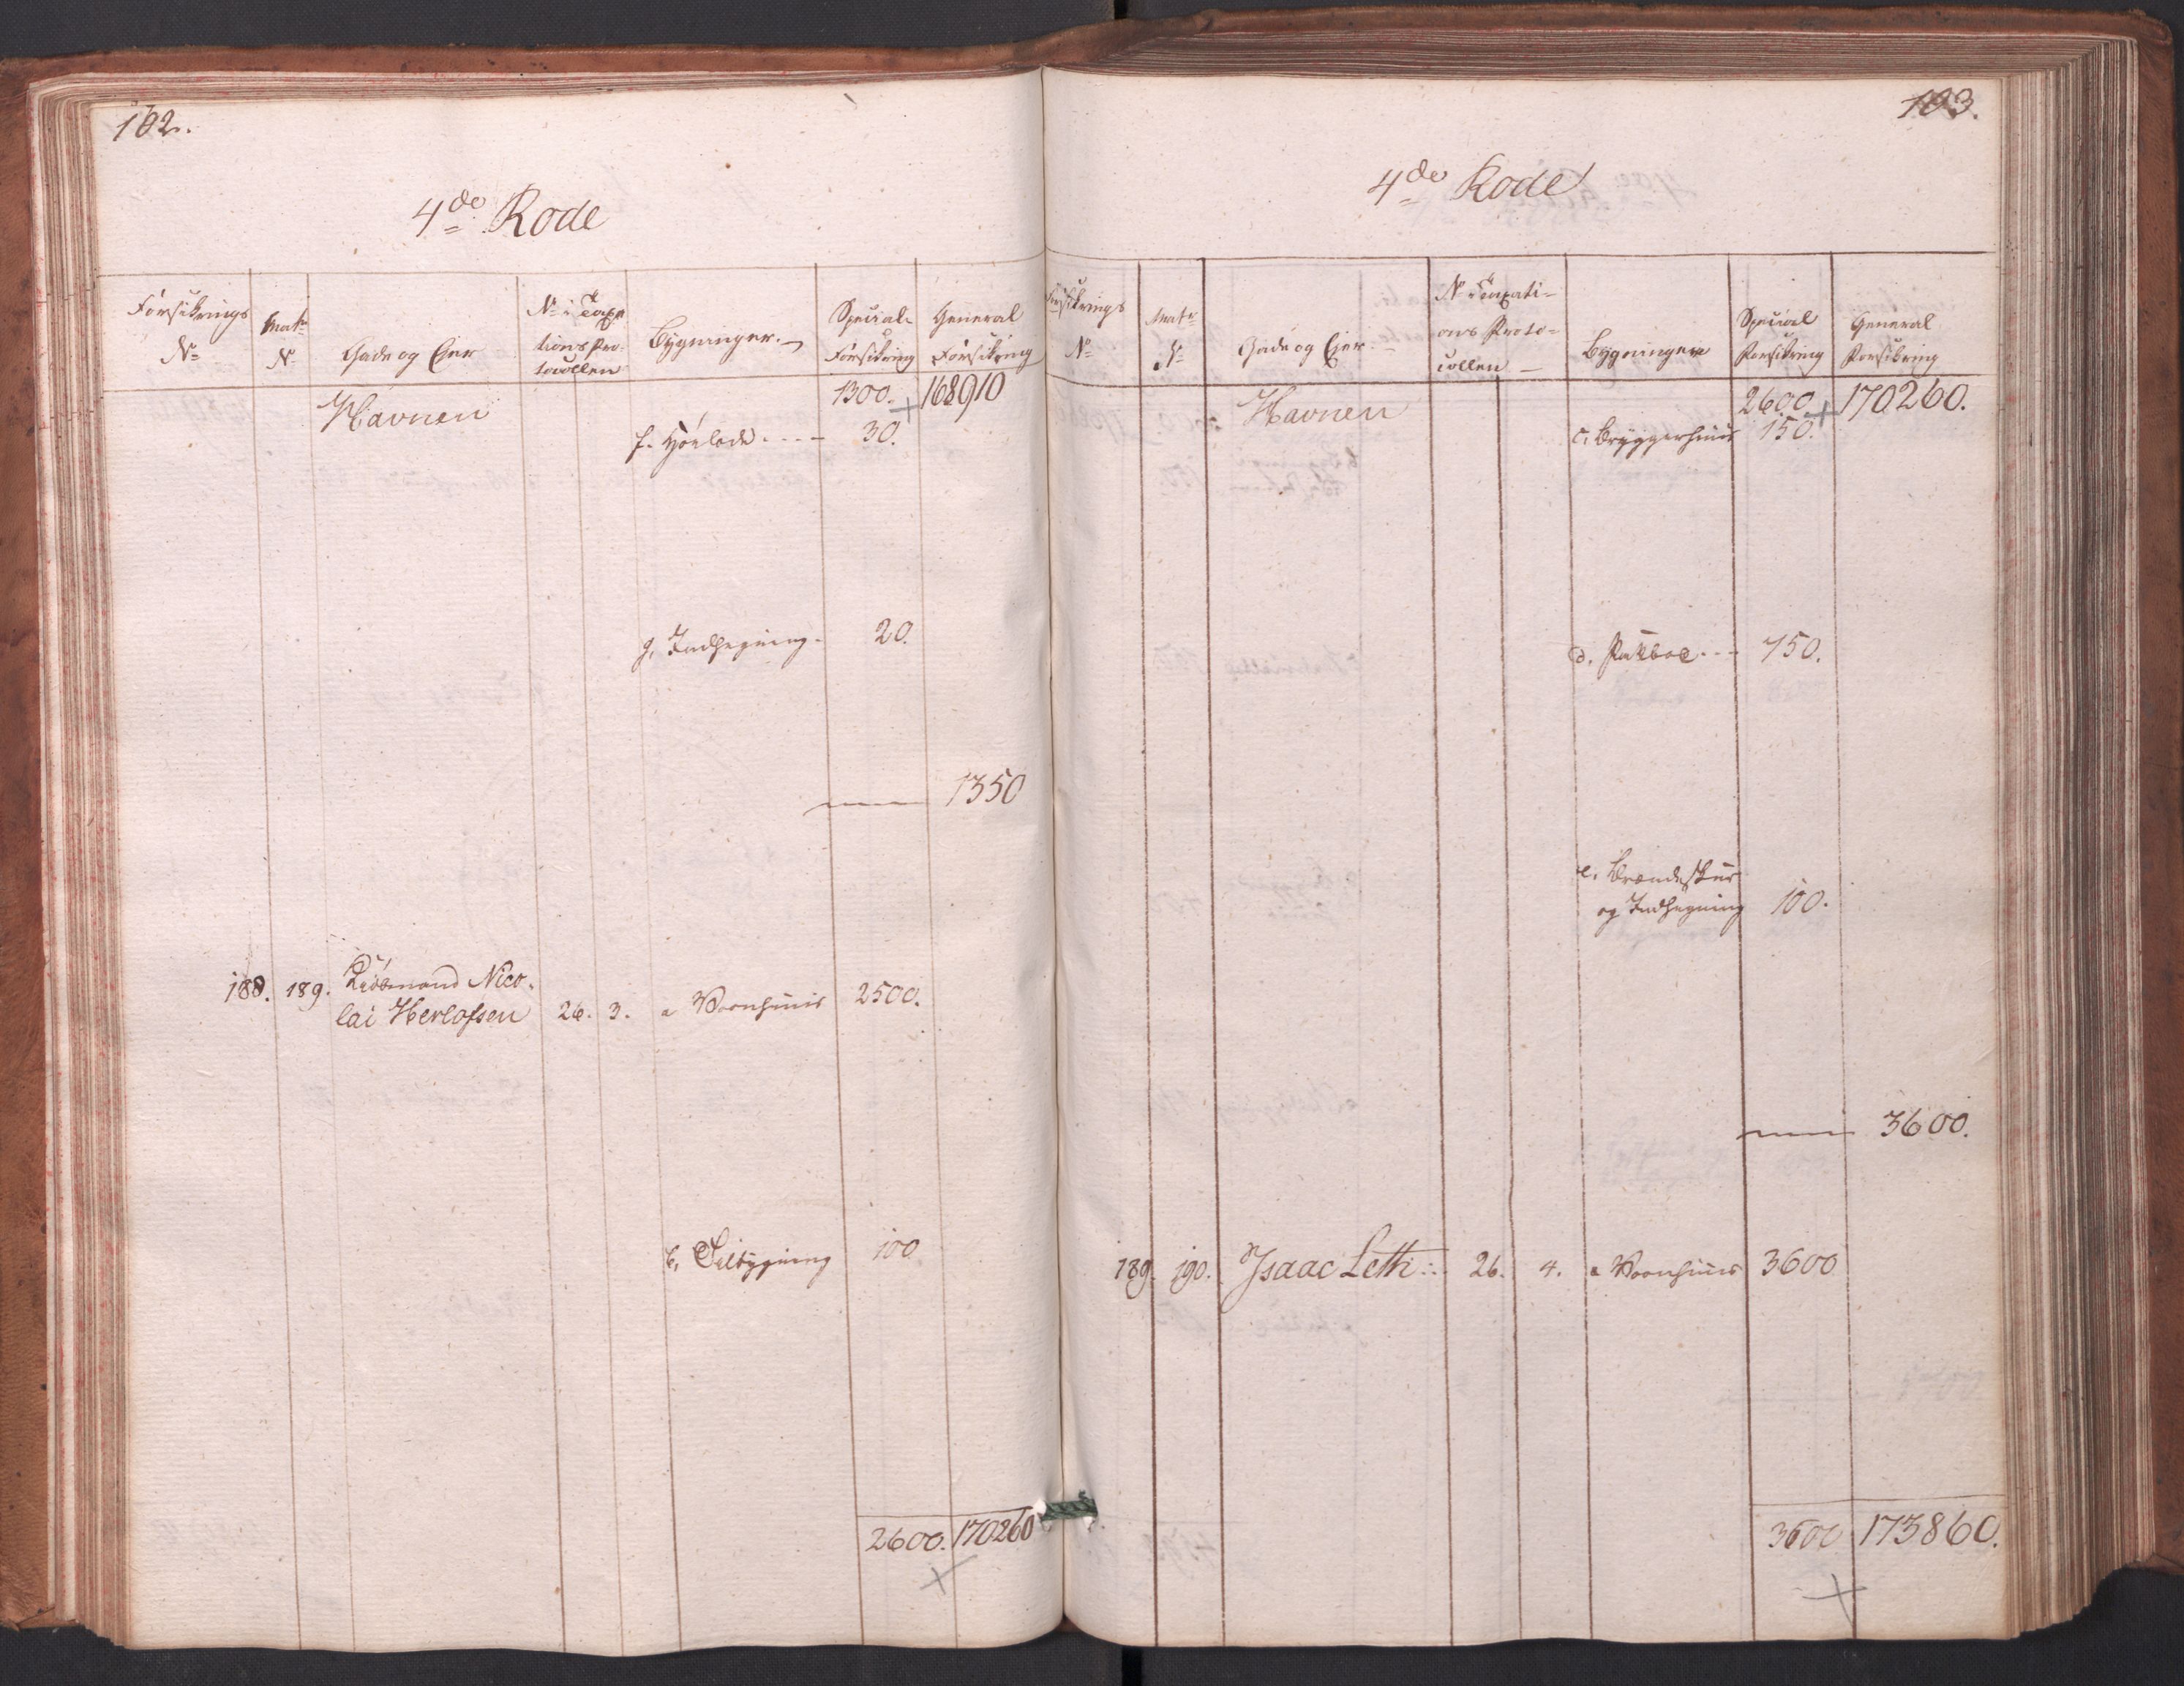 102.
4de Rode
Forsikrings
No
Matr
N
Gade og Ejer
No i Taxa-
tions Pro-
tocollen
Bygninger.
Special-
Forsikring
General
Forsikring
Havnen
1300. 168910
f. Høelade 30.
g. Indhegning 20.
1350
188. 189. Kiøbmand Nico-
lai Herlofsen 26. 3. a Vaanhuus 2500.
b. Tilbygning 100
2600. 170260
103.
4de Rode
Forsikrings
No
Matr
No
Gade og Ejer
No i Taxati-
ons Proto-
collen
Bygninger
Special
Forsikring
General
Forsikring
Havnen
2600 170260.
c. Bryggerhuus 150.
d. Pakboe 750.
e. Brændeskur
og Indhegning 100.
3600.
189. 190. Isaac Leth 26. 4. a Vaanhuus 3600
3600 173860.